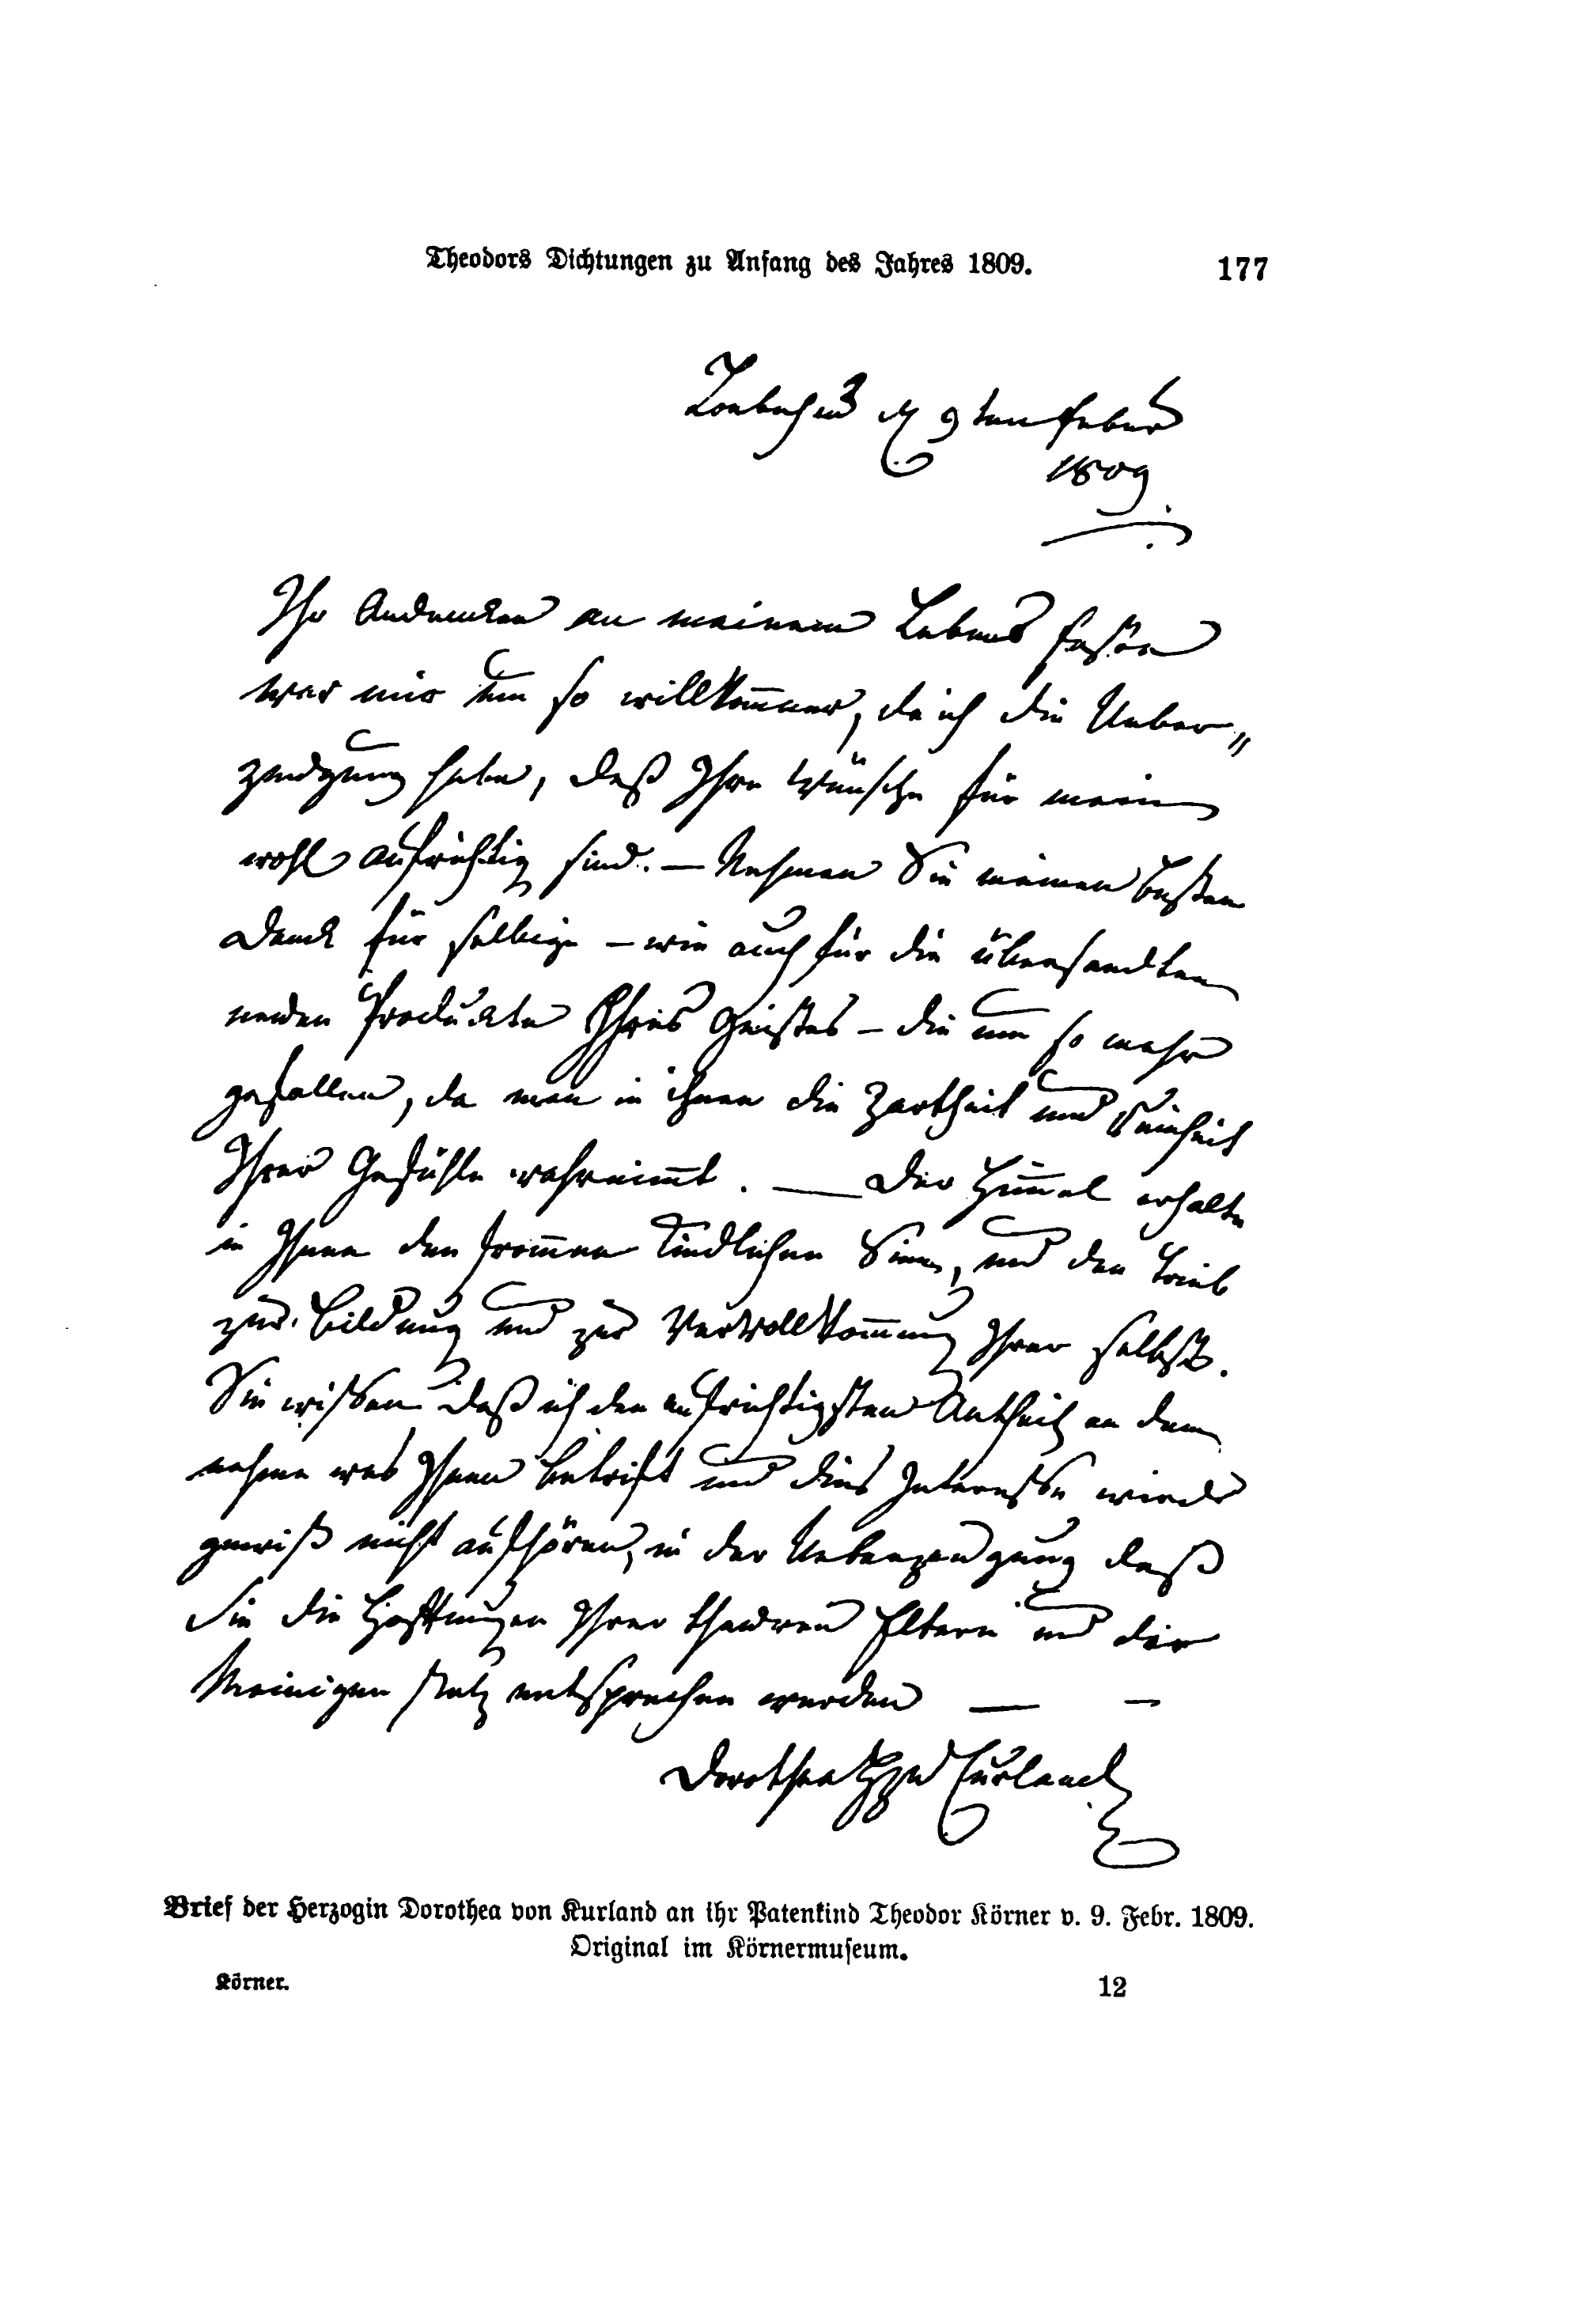 Theodors Dichtungen zu Anfang des Jahres 1809.
177
Loebichau d 9ten Feber
1809
Ihr Andencken an meinem Lebens feste
war mir um so willkom̅ner, da ich die Ueber„
zeudgung habe, daß Ihre Wünsche für mein
wohl aufrichtig sind. — Nehmen Sie meinen besten
Danck für selbige — wie auch für die übersandten
neuen Produckte Ihres Geistes — die um so mehr
gefallen, da man in ihnen die Zartheit und Reinheit
Ihrer Gefühle wahrnim̅t. — Der Him̅el erhalte
in Ihnen den from̅en kindlichen Sinn, und den Trieb
zur Bildung und zur Vervollkom̅nung Ihrer selbst.
Sie wissen daß ich den aufrichtigsten Antheil an dem
nehme was Ihnen betrift und dies Interesse wird
gewiß nicht aufhören, in der Ueberzeudgung daß
Sie die Hoffnungen Ihrer theuren Eltern und die
Meinigen stetz entsprechen werden — —
Dorothea Curland
Brief der Herzogin Dorothea von Kurland an ihr Patenkind Theodor Körner v. 9. Febr. 1809.
Original im Körnermuseum.
Körner.
12